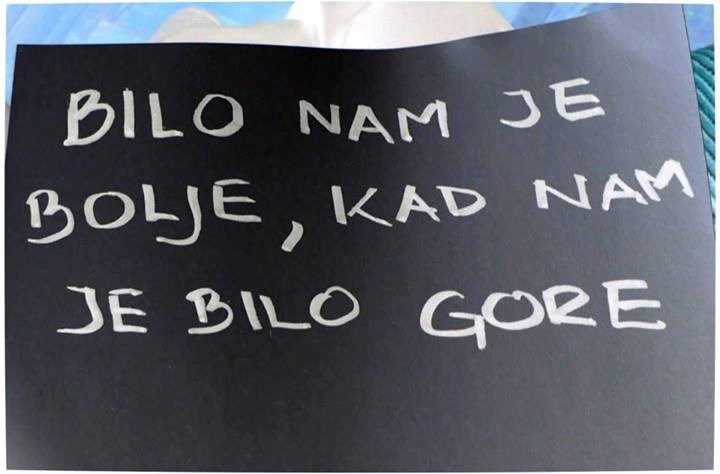 BILO NAM JE
BOLJE, KAD NAM
JE BILO GORE